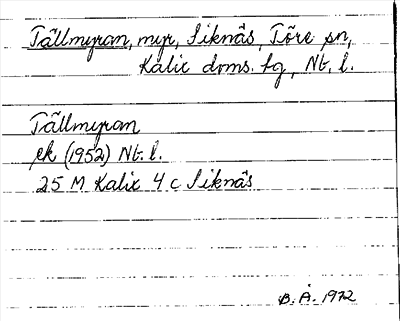 Tällmyran, myr, Siknäs, Töre sn,
Kalix doms. lg, Nb. l.
Tällmyran
ek (1952) Nb. l.
25 M Kalix 4 c Siknäs
B. Å. 1972